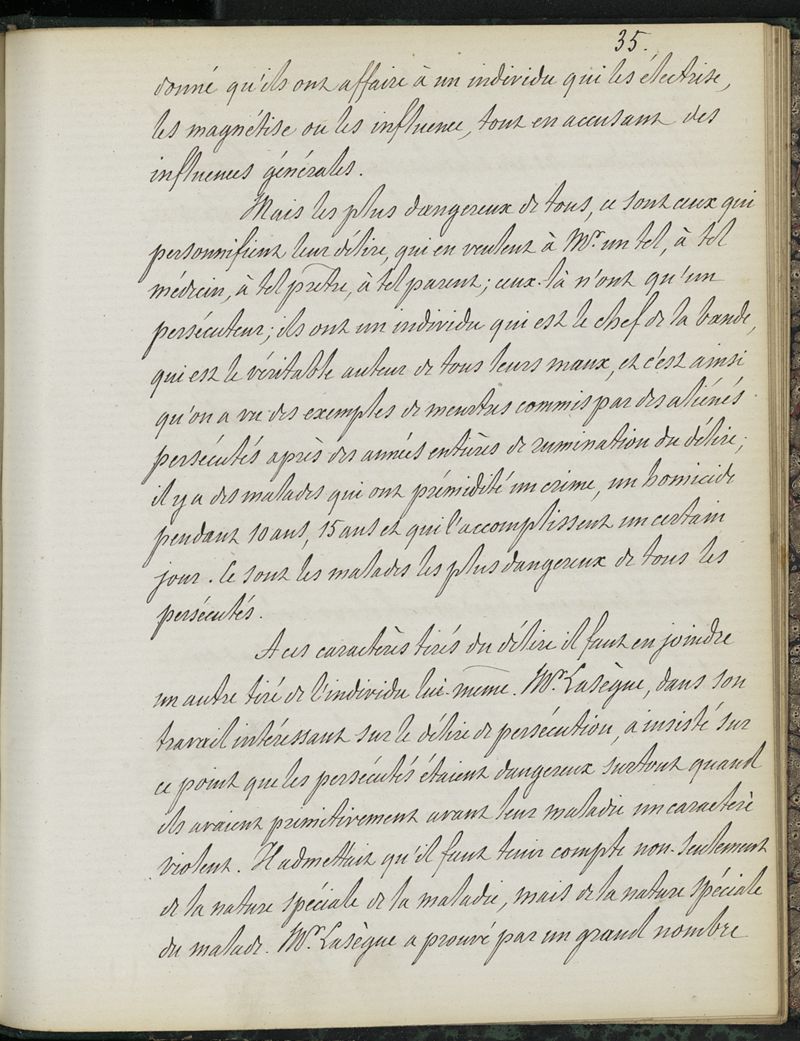 35.
donné qu'ils ont affaire à un individu qui les électrise,
les magnétise ou les influence, tout en accusant des
influences générales.
Mais les plus dangereux de tous, ce sont ceux qui
personnifient leur délire, qui en veulent à Mr. un tel, à tel
médecin, à tel prêtre, à tel parent; ceux-là n'ont qu'un
persécuteur; ils ont un individu qui est le chef de la bande,
qui est le véritable auteur de tous leurs maux, et c'est ainsi
qu'on a vu des exemples de meurtres commis par des aliénés
persécutés après des années entières de rumination du délire;
il y a des malades qui ont prémédité un crime, un homicide
pendant 10 ans, 15 ans et qui l'accomplissent un certain
jour. Ce sont les malades les plus dangereux de tous les
persécutés.
A ces caractères tirés du délire il faut en joindre
un autre tiré de l'individu lui-même. Mr. Lasègue, dans son
travail intéressant sur le délire de persécution, a insisté sur
ce point que les persécutés étaient dangereux surtout quand
ils avaient primitivement avant leur maladie un caractère
violent. Il admettait qu'il faut tenir compte non-seulement
de la nature spéciale de la maladie, mais de la nature spéciale
du malade. Mr. Lasègue a prouvé par un grand nombre